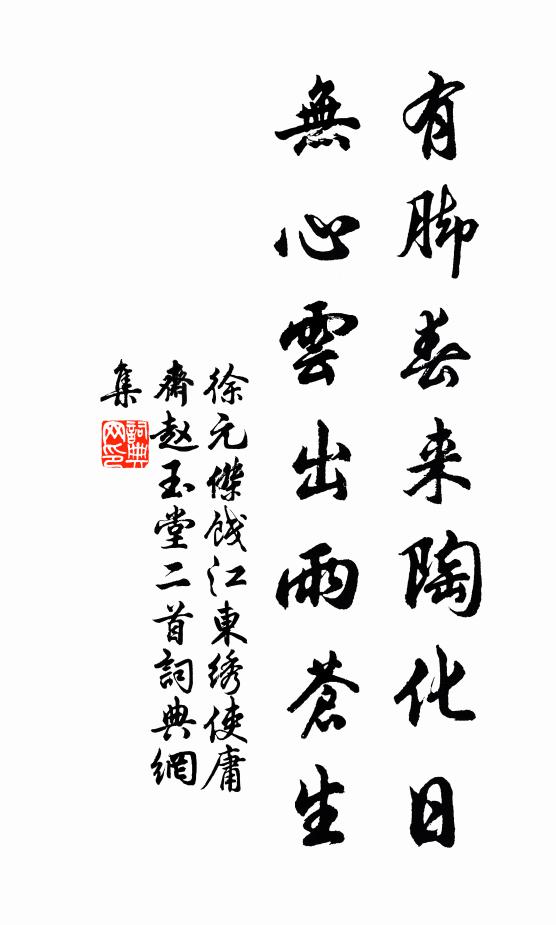 有脚春来陶化日
無心雲出雨蒼生
徐元傑餞江東绣使庸
齋赵玉堂二首詞典網
集
詞典網印